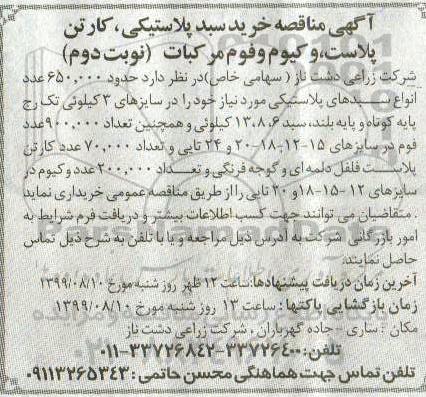 آگهی مناقصه خرید سبد پلاستیکی، کارتن
پلاست، وکیوم وفوم مرکبات (نوبت دوم)
شرکت زراعی دشت ناز ( سهامی خاص)در نظر دارد حدود ۶۵۰,۰۰۰عدد
انواع سبدهای پلاستیکی مورد نیاز خود را در سایزهای ۳ کیلوئی تک رج
پایه کوتاه و پایه بلند، سبد ۱۳،۸،۶ کیلوئی و همچنین تعداد ۹۰۰,۰۰۰عدد
فوم در سایزهای ۱۵-۱۲-۱۸-۲۰ و ۲۴ تایی و تعداد ۷۰,۰۰۰ عدد کارتن
پلاست فلفل دلمه ای و گوجه فرنگی و تعداد ۲۰۰,۰۰۰ عدد وکیوم در
سایزهای ۱۲-۱۵-۱۸و ۲۰ تایی رااز طریق مناقصه عمومی خریداری نماید
. متقاضیان می توانند جهت کسب اطلاعات بیشتر و دریافت فرم شرایط به
امور بازرگانی شرکت به آدرس ذیل مراجعه و یا با تلفن به شرح ذیل تماس
حاصل نمایند.
آخرین زمان دریافت پیشنهادها:ساعت ۱۲ ظهر روز شنبه مورخ ۱۳۹۹/۰۸/۱۰
زمان بازگشایی پاکتها : ساعت ۱۳ روز شنبه مورخ ۱۳۹۹/۰۸/۱۰
مکان : ساری – جاده گهرباران ، شرکت زراعی دشت ناز
تلفن: ۳۳۷۲۶۴۰۰-۳۳۷۲۶۸۴۲-۰۱۱
تلفن تماس جهت هماهنگی محسن حاتمی : ۰۹۱۱۳۲۶۵۳۴۳
ParsNamadData